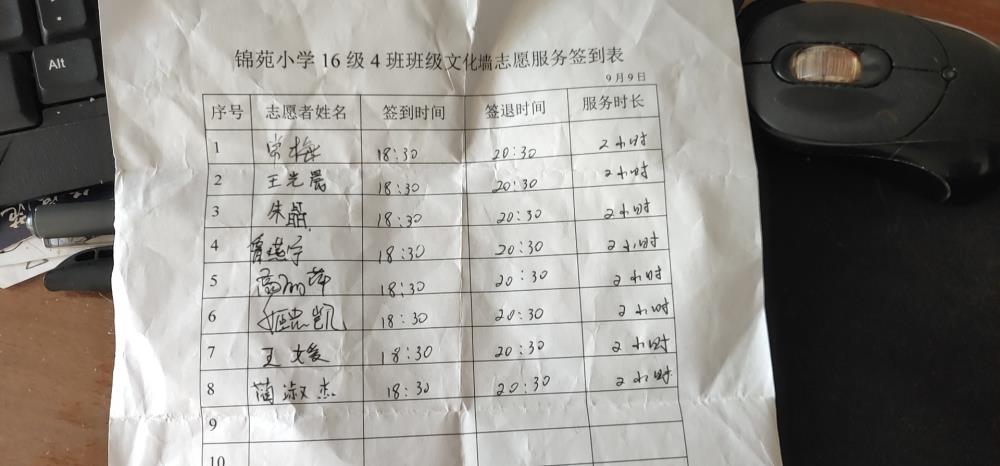 Alt
锦苑小学16级4班班级文化墙志愿服务签到表
9月9日
序号 志愿者姓名 签到时间 签退时间 服务时长
1 宋梅 18:30 20:30 2小时
2 王光晨 18:30 20:30 2小时
3 朱晶 18:30 20:30 2小时
4 18:30 20:30 2小时
5 高丽萍 18:30 20:30 2小时
6 姬忠凯 18:30 20:30 2小时
7 王文爱 18:30 20:30 2小时
8 蔺淑杰 18:30 20:30 2小时
9
10